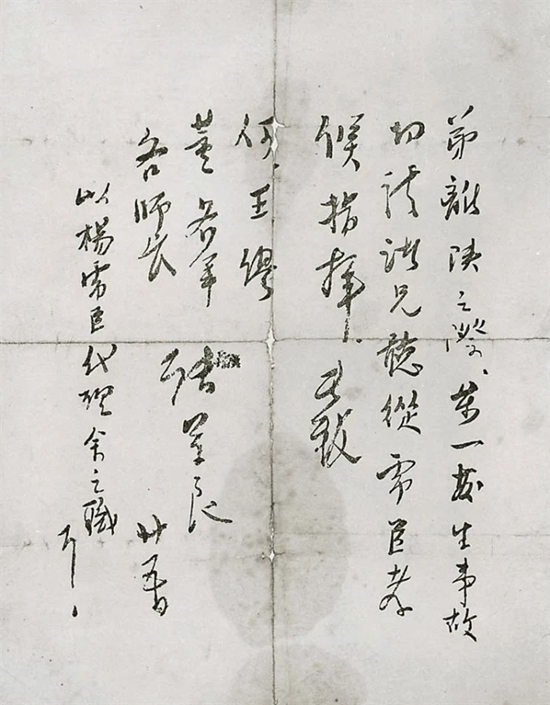 弟離陝之際、萬一發生事故
切請諸兄聽從虎臣孝
侯指揮、此致
何、王、繆
董各軍
各師長
張學良
廿五日
以楊虎臣代理余之職
即、